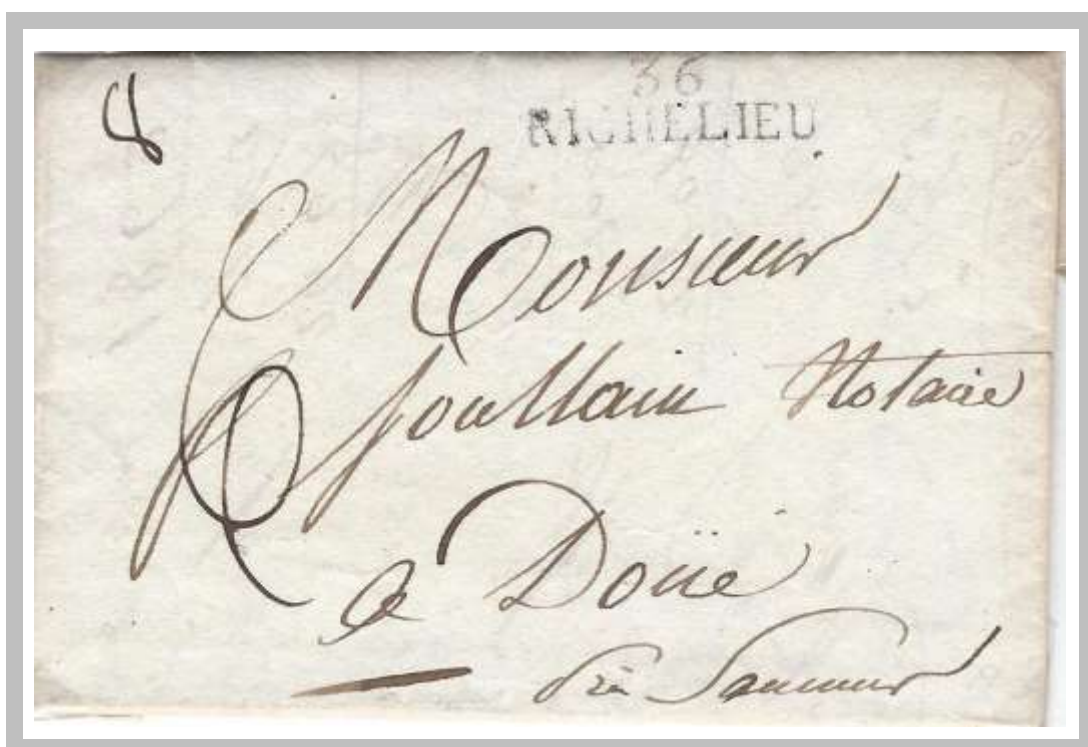 8
36
RICHELIEU
Monsieur
Joullain Notaire
a Doüé
près Saumur